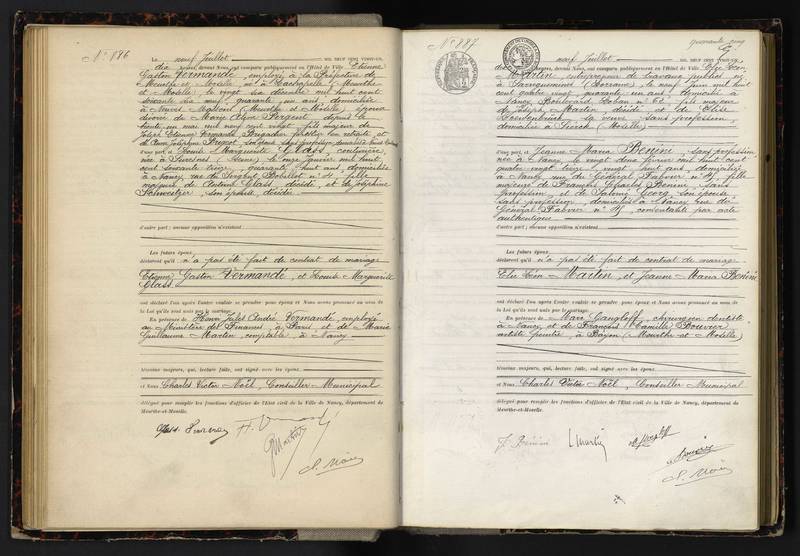 N° 896
Le neuf Juillet mil neuf cent vingt-un,
dix heures, devant Nous, ont comparu publiquement en l'Hôtel de Ville Etienne
Gaston Vermandé, employé à la Préfecture de
Meurthe et Moselle, né à Lachapelle (Meurthe
et Moselle), le vingt six décembre mil huit cent
soixante dix neuf, quarante un ans, domicilié
à (Meurthe et Moselle) époux
divorcé de Marie Pergent, depuis le
trente un mai mil neuf cent vingt, fils majeur de
Joseph Etienne Vermandé, Brigadier forestier en retraite et
de son épouse, sans profession, domiciliés
d'une part, et Louise Marguerite Glass, couturière
née à Suresnes (Seine) le onze janvier mil huit
cent soixante treize, quarante huit ans, domiciliée
à Nancy, rue du Sergent Blandan n° fille
majeure de Antoine Glass, décédé, et de Joséphine
Schweitzer, son épouse, décédée
d'autre part ; aucune opposition n'existant
Les futurs époux
déclarent qu'il n'a pas été fait de contrat de mariage
Etienne Gaston Vermandé, et Louise Marguerite
Glass
ont déclaré l'un après l'autre vouloir se prendre pour époux et Nous avons prononcé au nom de
la Loi qu'ils sont unis par le mariage.
En présence de Henri Jules André Vermandé, employé
au Ministère des Finances, à Paris, et de Marie
Guillaume Martin, comptable, à Nancy
témoins majeurs, qui, lecture faite, ont signé avec les époux.
et Nous, Charles Victor Noël, Conseiller Municipal
délégué pour remplir les fonctions d'officier de l'Etat civil de la Ville de Nancy, département de
Meurthe-et-Moselle.
Glass
G Martin
C. Noël
N° 897
neuf Juillet mil neuf cent vingt-un,
heures, devant Nous, ont comparu publiquement en l'Hôtel de Ville Elie Léon
Martin, entrepreneur de travaux publics, né
à Sarreguemines (Lorraine), le neuf juin mil huit
cent quatre vingt, quarante un ans, domicilié à
Nancy, Boulevard Lobau n° 62, fils majeur
de Joseph Martin, décédé, et de Elise
sa veuve, sans profession,
domiciliée à Sierck (Moselle)
d'une part, et Jeanne Maria Bénéné, sans profession
née à Nancy, le vingt deux février mil huit cent
quatre vingt treize, vingt huit ans, domiciliée
à Nancy, rue du Général Fabvier n° fille
majeure de François Charles Bénéné, sans
profession, et de Salomé Georg, son épouse,
sans profession, domiciliés à Nancy, rue du
Général Fabvier n° consentants par acte
authentique
d'autre part ; aucune opposition n'existant
Les futurs époux
déclarent qu'il n'a pas été fait de contrat de mariage
Elie Léon Martin, et Jeanne Maria Bénéné
ont déclaré l'un après l'autre vouloir se prendre pour époux et Nous avons prononcé au nom de
la Loi qu'ils sont unis par le mariage.
En présence de Marc Gangloff, chirurgien dentiste
à Nancy, et de François Camille Bouvier
artiste peintre, à Bayon (Meurthe et Moselle)
témoins majeurs, qui, lecture faite, ont signé avec les époux.
et Nous, Charles Victor Noël, Conseiller Municipal
délégué pour remplir les fonctions d'officier de l'Etat civil de la Ville de Nancy, département de
Meurthe-et-Moselle.
J. Bénéné L Martin Gangloff
Bouvier
C. Noël